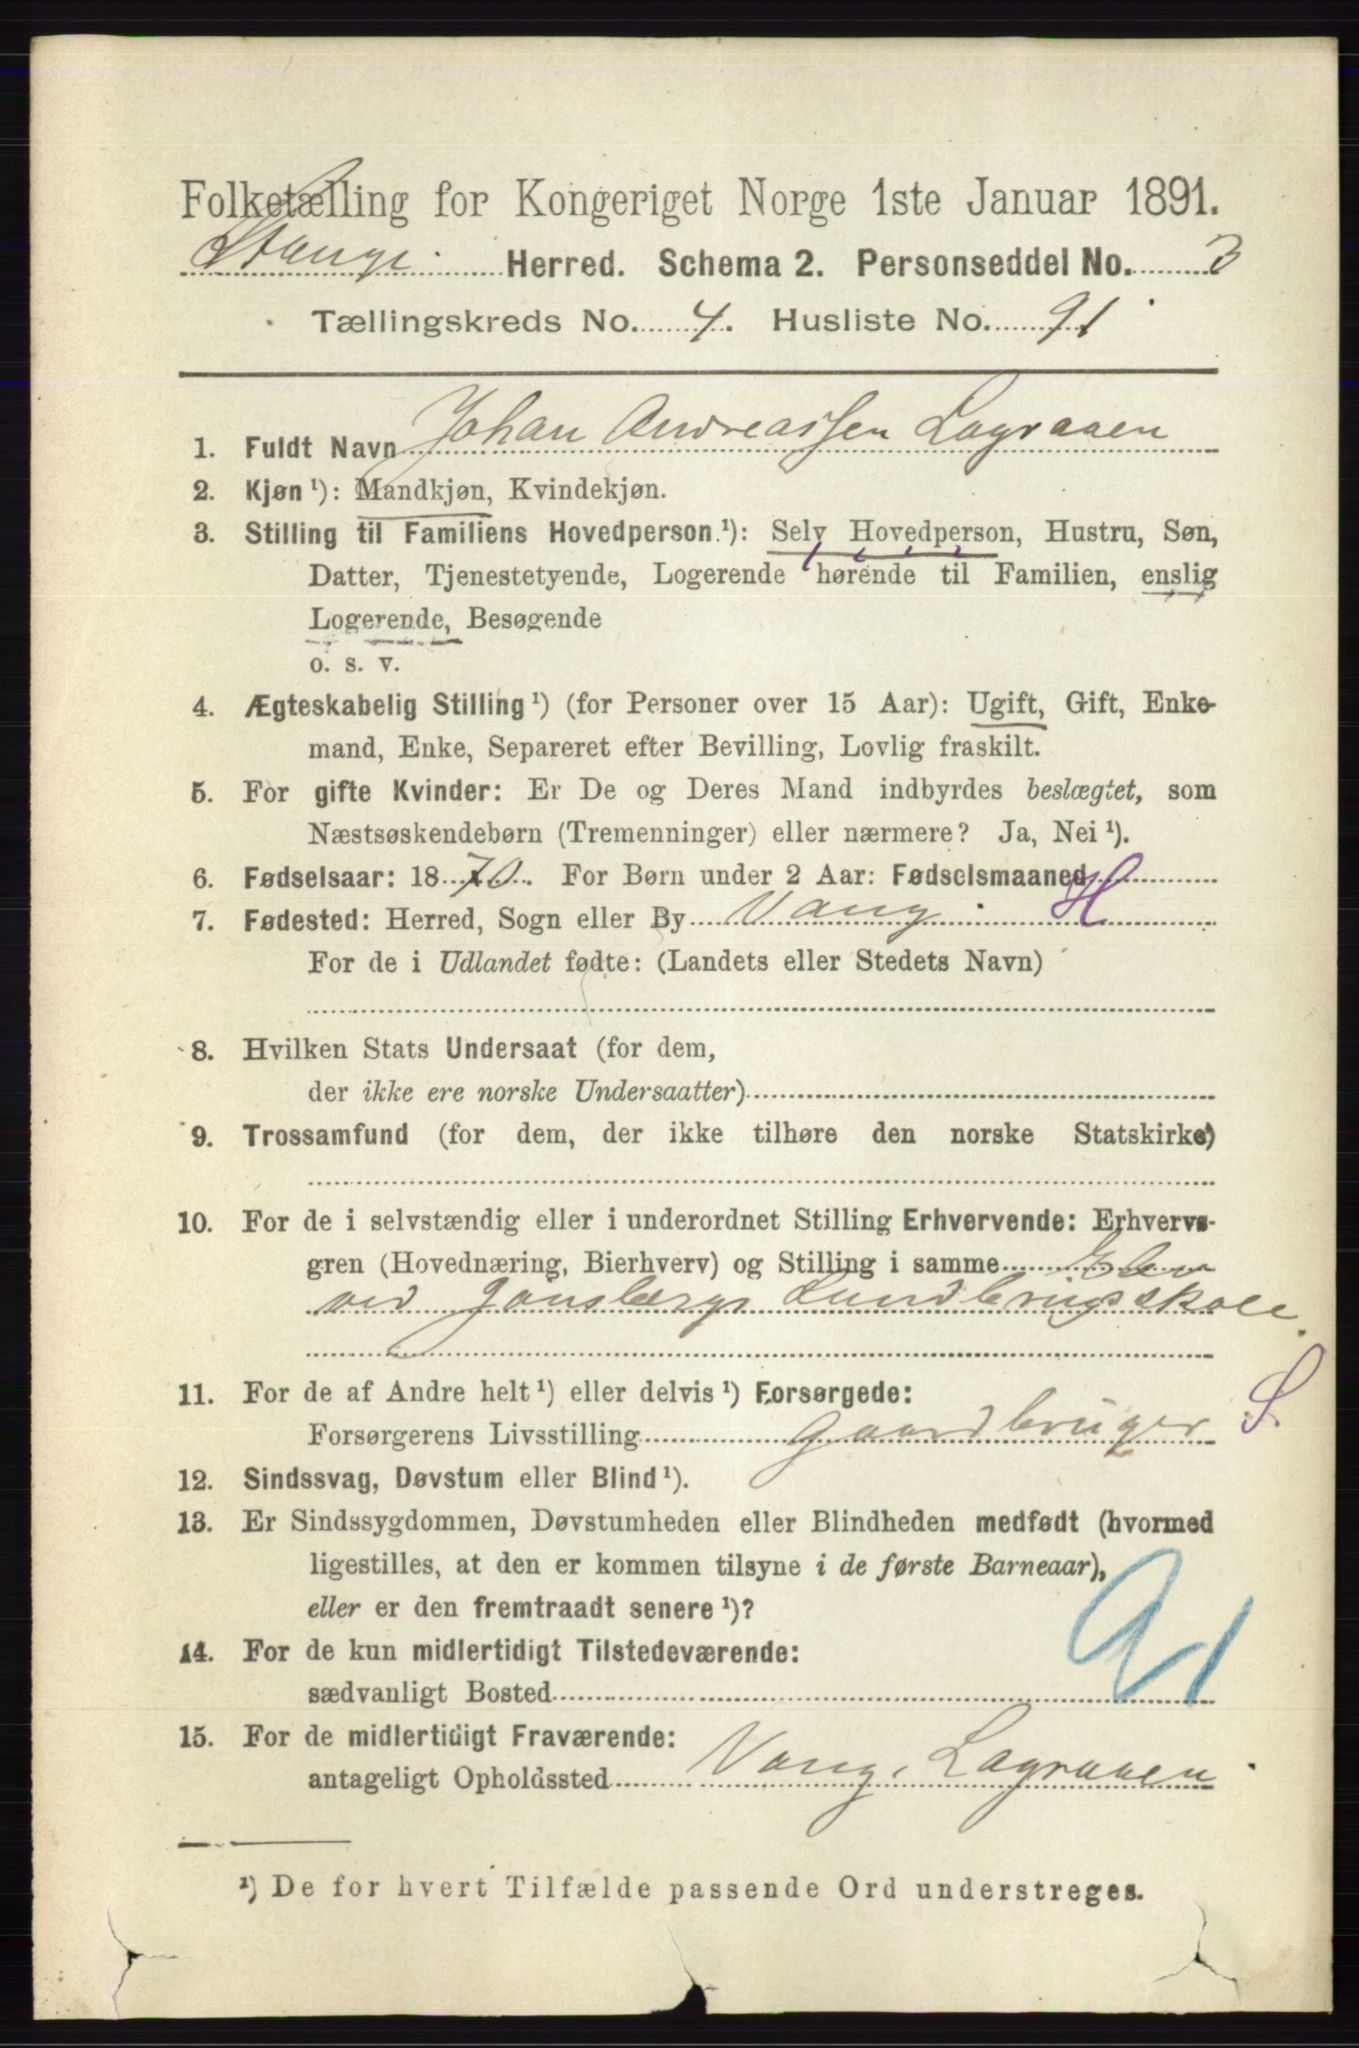 Folketælling for Kongeriget Norge 1ste Januar 1891.
Stange Herred. Schema 2. Personseddel No. 3
Tællingskreds No. 4. Husliste No. 91
1. Fuldt Navn Johan Andreassen Lagraaen
2. Kjøn ¹): Mandkjøn, Kvindekjøn.
3. Stilling til Familiens Hovedperson ¹): Selv Hovedperson, Hustru, Søn,
Datter, Tjenestetyende, Logerende hørende til Familien, enslig
Logerende, Besøgende
o. s. v.
4. Ægteskabelig Stilling ¹) (for Personer over 15 Aar): Ugift, Gift, Enke-
mand, Enke, Separeret efter Bevilling, Lovlig fraskilt.
5. For gifte Kvinder: Er De og Deres Mand indbyrdes beslægtet, som
Næstsøskendebørn (Tremenninger) eller nærmere? Ja, Nei ¹).
6. Fødselsaar: 1870. For Børn under 2 Aar: Fødselsmaaned
7. Fødested: Herred, Sogn eller By Vang H
For de i Udlandet fødte: (Landets eller Stedets Navn)
8. Hvilken Stats Undersaat (for dem,
der ikke ere norske Undersaatter)
9. Trossamfund (for dem, der ikke tilhøre den norske Statskirke)
10. For de i selvstændig eller i underordnet Stilling Erhvervende: Erhvervs-
gren (Hovednæring, Bierhverv) og Stilling i samme Elev
ved Jønsbergs Landbrugsskole.
11. For de af Andre helt ¹) eller delvis ¹) Forsørgede: S.
Forsørgerens Livsstilling gaardbruger
12. Sindssvag, Døvstum eller Blind ¹).
13. Er Sindssygdommen, Døvstumheden eller Blindheden medfødt (hvormed
ligestilles, at den er kommen tilsyne i de første Barneaar),
eller er den fremtraadt senere ¹)?
91
14. For de kun midlertidigt Tilstedeværende:
sædvanligt Bosted
15. For de midlertidigt Fraværende:
antageligt Opholdssted Vang, Lagraaen
¹) De for hvert Tilfælde passende Ord understreges.